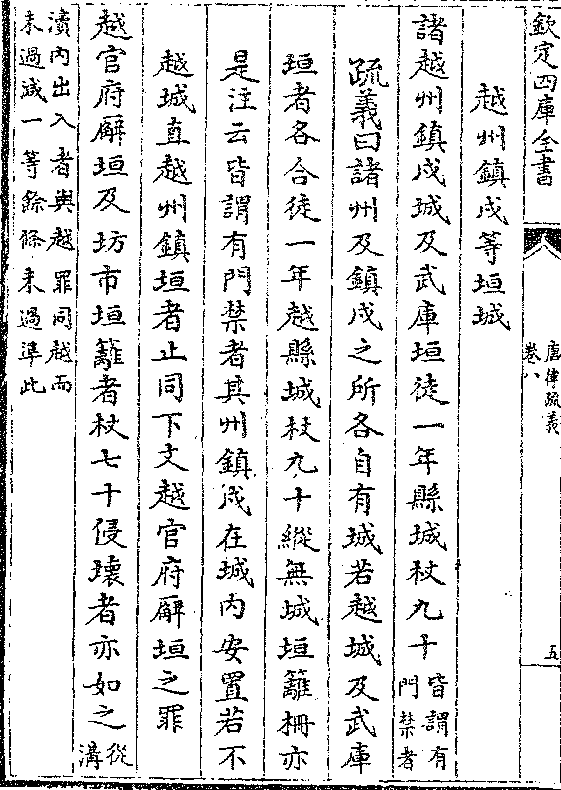 欽定四庫全書
唐律疏義
卷八
五
越州鎮戍等垣城
諸越州鎮戍城及武庫垣徒一年縣城杖九十皆謂有門禁者
疏義曰諸州及鎮戍之所各自有城若越城及武庫
垣者各合徒一年越縣城杖九十縱無城垣籬柵亦
是注云皆謂有門禁者其州鎮戍在城內安置若不
越城直越州鎮垣者止同下文越官府廨垣之罪
越官府廨垣及坊市垣籬者杖七十侵壊者亦如之從溝
瀆內出入者與越罪同越而
未過減一等餘條未過準此